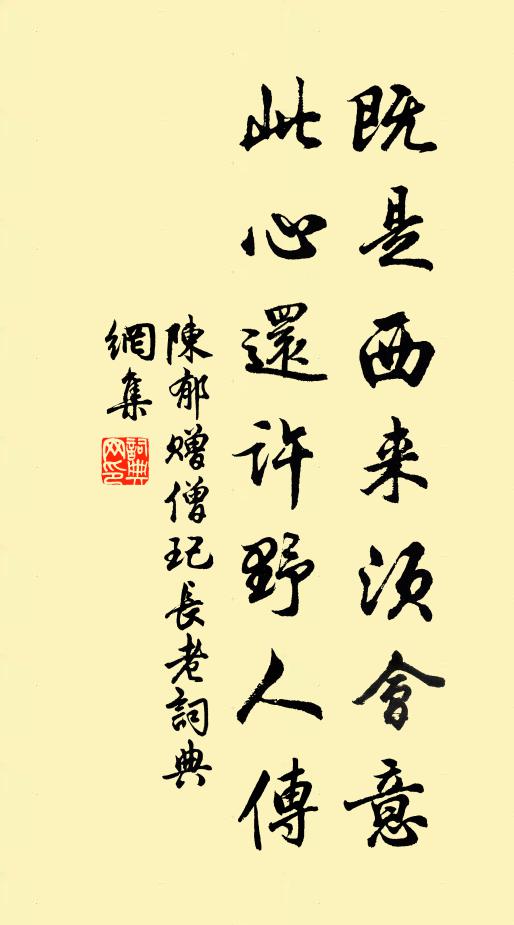 既是西来须會意
此心還許野人傳
陳郁赠僧玘長老詞典
網集
詞典網印